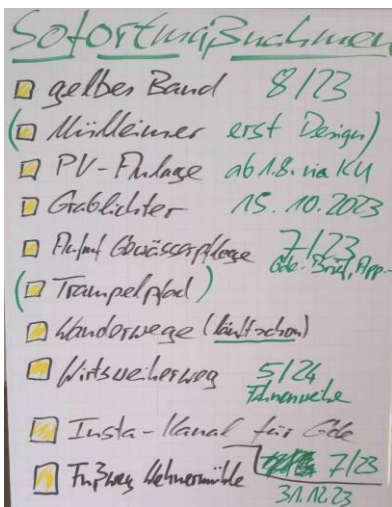 Sofortmaßnahmen
gelbes Band 8/23
(Mülleimer erst Design)
PV-Anlage ab 1.8. via KU
Grablichter 15.10.2023
Gewässerpflege 7/23
Gde-Brief, App
(Trampelpfad)
Wanderwege (läuft schon)
Wirtsweiherweg 5/24
Fahnenweihe
Insta-Kanal für Gde
7/23
Fußweg Wehnermühle
31.12.23